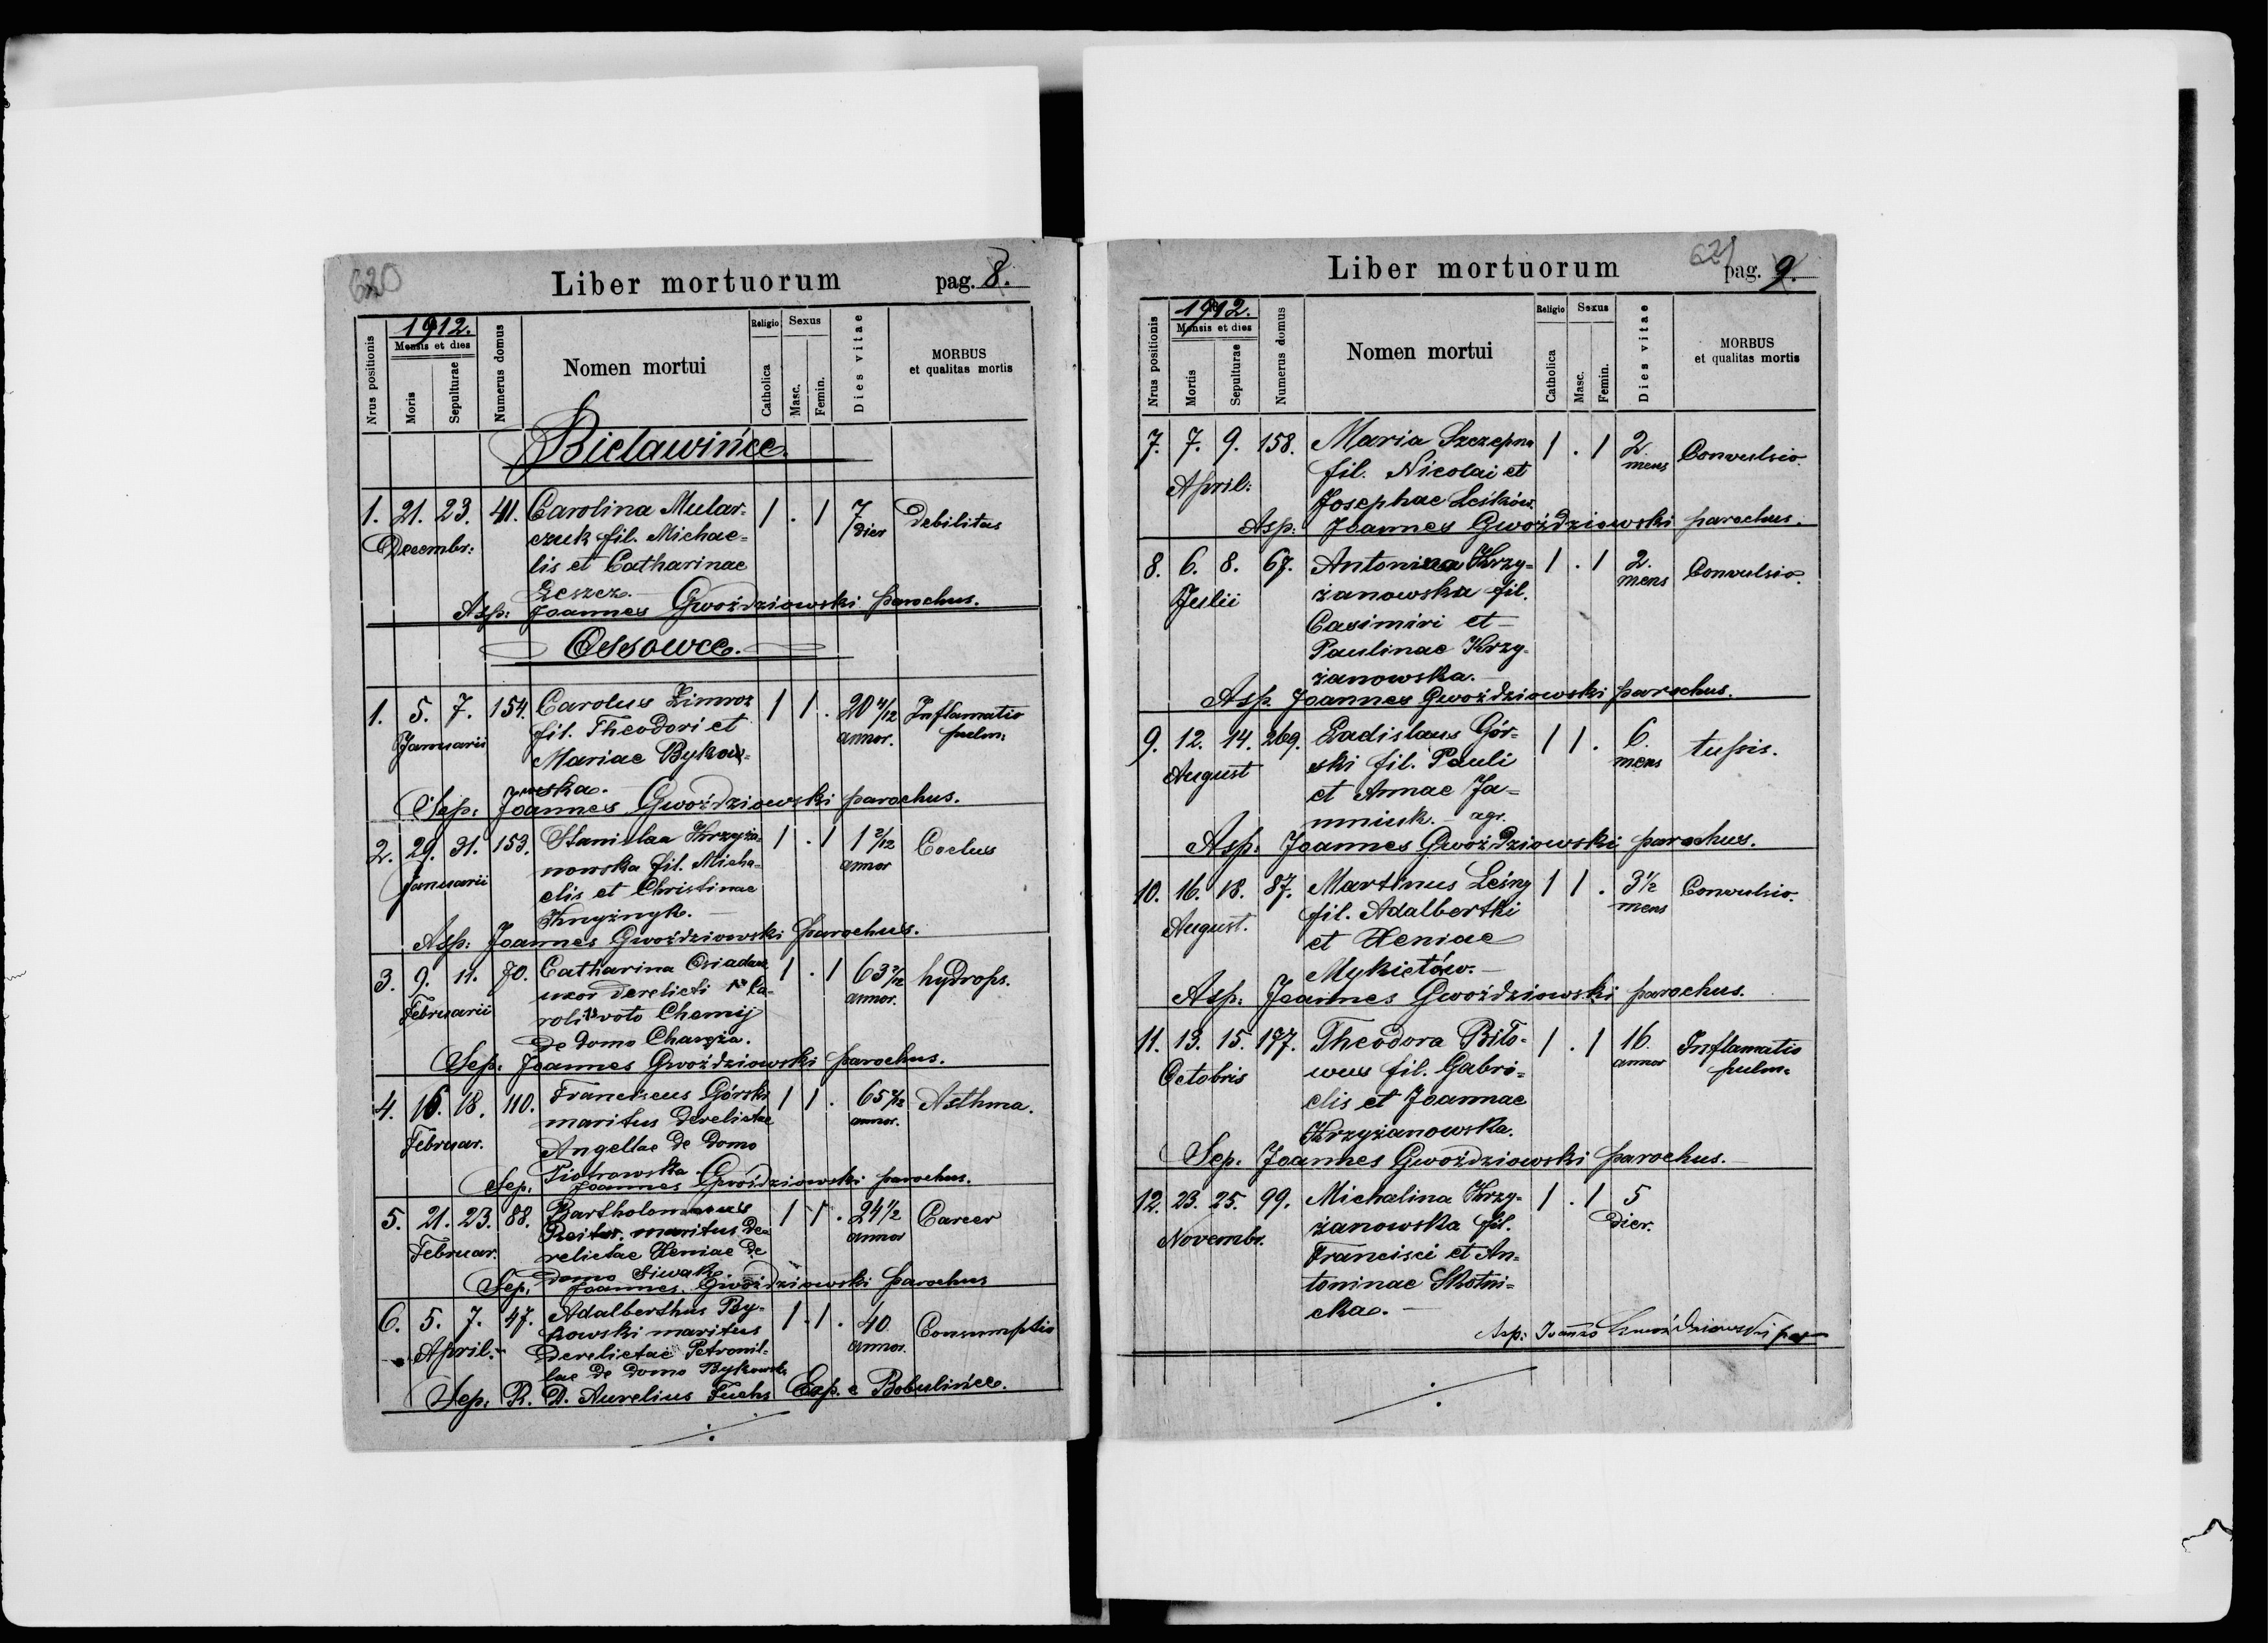 620
Liber mortuorum
pag. 8.
Nrus positionis
1912.
Mensis et dies
Moris
Sepulturae
Numerus domus
Nomen mortui
Religio
Catholica
Sexus
Masc.
Femin.
Dies vitae
MORBUS
et qualitas mortis
Bielawińce.
1. 21. 23. 41. Carolina Mular- 1 . 1 7 Debilitas
Decembr: czuk fil. Michae- dier
lis et Catharinae
Leszcz.
Asp: Joannes Gwoździowski parochus.
Ossowce.
1. 5. 7. 154. Carolus Zimroz 1 1 . 20 4/12 Inflamatio
Januarii fil. Theodori et annor. pulm:
Mariae Bykow-
wska.
Sep: Joannes Gwoździowski parochus.
2. 29. 31. 153. Stanislaa Krzyża- 1 . 1 1 2/12
Januarii nowska fil. Micha- annor
elis et Christinae
Knyżnyk.
Asp: Joannes Gwoździowski parochus.
3. 9. 11. 70. Catharina 1 . 1 63 hydrops.
Februarii uxor derelicti Ca- annor.
roli voto Chemij
de domo
Sep. Joannes Gwoździowski parochus.
4. 16. 18. 110. Franciscus Górski 1 1 . 65 Asthma.
Februar. maritus derelictae annor.
Angellae de domo
Piotrowska
Sep. Joannes Gwoździowski parochus.
5. 21. 23. 88. Bartholomaeus 1 1 . 24 1/2 Carcer
Februar. maritus de- annor
relictae Xeniae de
domo Siwak.
Sep. Joannes Gwoździowski parochus
6. 5. 7. 47. Adalberthus By- 1 . 1 . 40 Consumptio
April. kowski maritus annor.
derelictae Petronil-
lae de domo Bykowska
Sep. R. D. Aurelius Fuchs Exp. e Bobulińce.
621
Liber mortuorum
pag. 9.
Nrus positionis
1912.
Mensis et dies
Mortis
Sepulturae
Numerus domus
Nomen mortui
Religio
Catholica
Sexus
Masc.
Femin.
Dies vitae
MORBUS
et qualitas mortis
7. 7. 9. 158. Maria Szczepna 1 . 1 2 Convulsio.
April: fil. Nicolai et mens
Josephae Leśków.
Asp: Joannes Gwoździowski parochus.
8. 6. 8. 67. Antonina Krzy- 1 . 1 2. Convulsio.
Julii żanowska fil. mens
Casimiri et
Paulinae Krzy-
żanowska.
Asp. Joannes Gwoździowski parochus.
9. 12. 14. 269. Ladislaus Gór- 1 1 . 6. tussis.
August ski fil. Pauli mens
et Annae Ja-
mniuk. - agr.
Asp: Joannes Gwoździowski parochus.
10. 16. 18. 87. Martinus Leśny 1 1 . 3 1/2 Convulsio.
August. fil. Adalberthi mens
et Xeniae
Mykietów.
Asp: Joannes Gwoździowski parochus.
11. 13. 15. 177. Theodora Bito- 1 . 1 16. Inflamatio
Octobris wus fil. Gabri- annor pulm:
elis et Joannae
Krzyżanowska.
Sep. Joannes Gwoździowski parochus.
12. 23. 25. 99. Michalina Krzy- 1 . 1 5
Novembr. żanowska fil. dier.
Francisci et An-
toninae Skotni-
cka.
Asp: Joannes Gwoździowski par